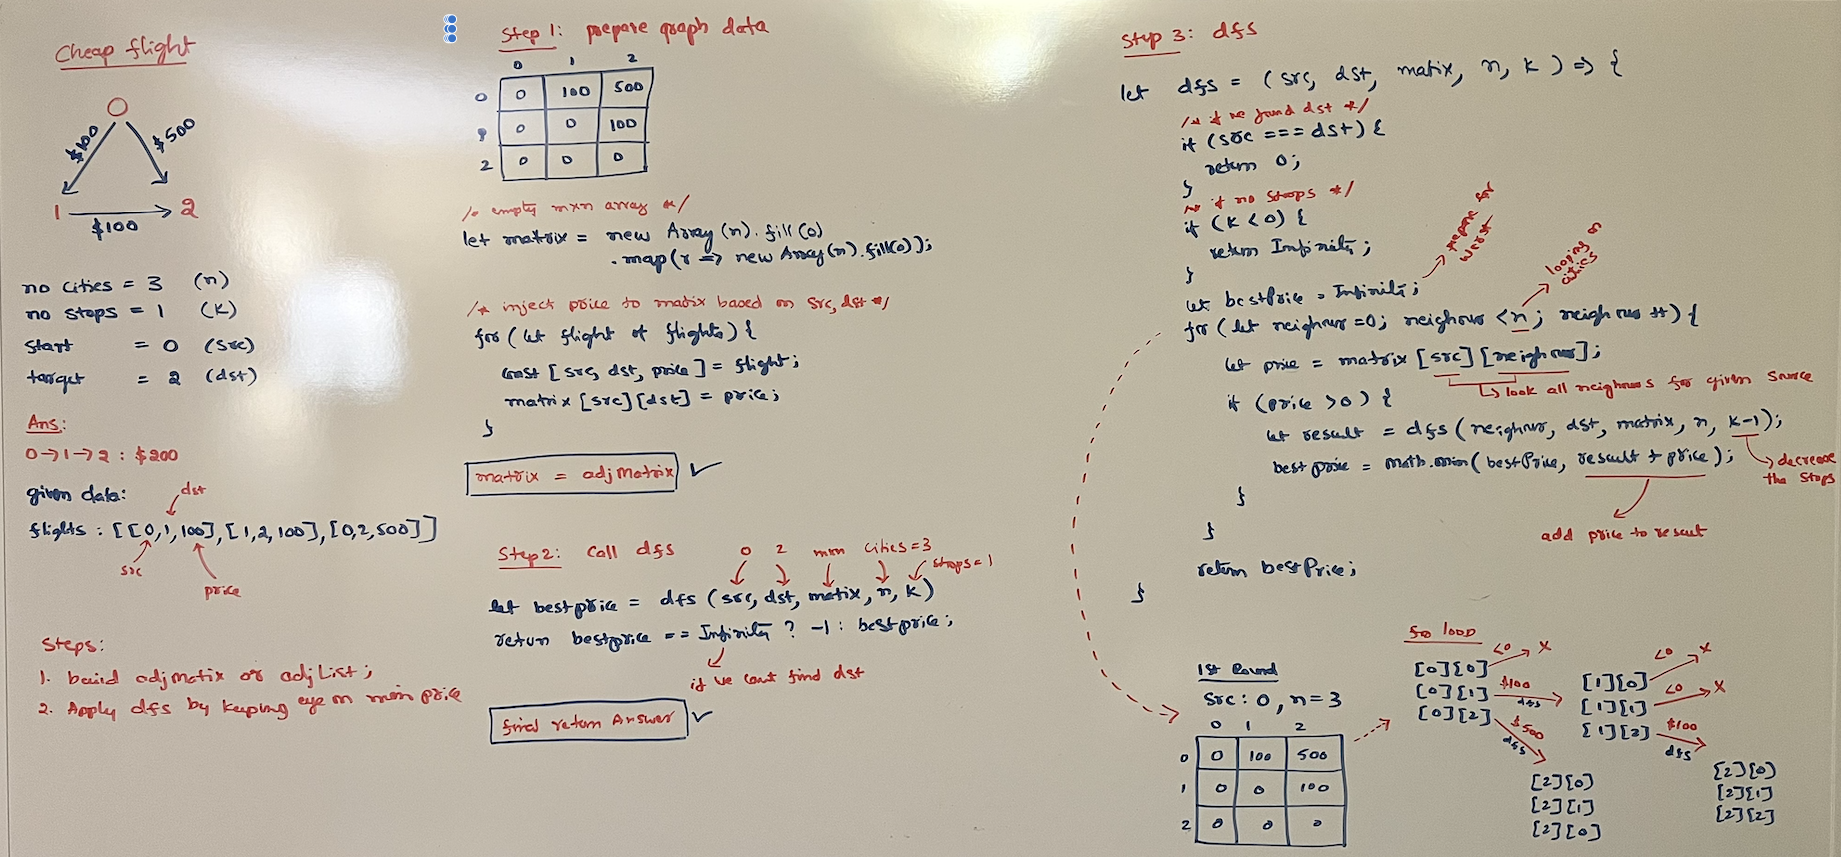 Cheap flight
0
$100
$500
1
2
$100
no cities = 3 (n)
no stops = 1 (K)
start = 0 (src)
target = 2 (dst)
Ans:
0→1→2 : $200
given data:
dst
flights : [[0,1,100],[1,2,100],[0,2,500]]
src
price
Steps:
1. build adjmatix or adjList;
2. Apply dfs by keeping eye on min price
Step 1: prepare graph data
0 1 2
0 0 100 500
1 0 0 100
2 0 0 0
/* empty mxn array */
let matrix = new Array(n).fill(0)
.map(r => new Array(n).fill(0));
/* inject price to matix based on src, dst */
for (let flight of flights) {
const [src, dst, price] = flight;
matrix [src][dst] = price;
}
matrix = adjMatrix ✓
Step 2: Call dfs
0 2 mxn cities=3
stops=1
let bestprice = dfs (src, dst, matix, n, K)
return bestprice == Infinity ? -1 : bestprice;
if we cant find dst
final return Answer ✓
Step 3: dfs
let dfs = (src, dst, matix, n, K) => {
/* if we found dst */
if (src === dst) {
return 0;
}
/* if no stops */
if (K < 0) {
return Infinity;
}
prepare for
worst
let bestPrice = Infinity;
looping on
cities
for (let neighour=0; neighour < n; neighour ++) {
let price = matrix [src][neighour];
look all neighours for given source
if (price > 0) {
let result = dfs (neighour, dst, matrix, n, K-1);
best price = math.min(bestPrice, result + price);
decrease
the stops
}
add price to result
}
return bestPrice;
}
1st Round
src: 0, n=3
0 1 2
0 0 100 500
1 0 0 100
2 0 0 0
for loop
[0][0] <0 x
[0][1] $100 dfs
[0][2] $500 dfs
[1][0] <0 x
[1][1] <0 x
[1][2] $100 dfs
[2][0]
[2][1]
[2][0]
[2][0]
[2][1]
[2][2]